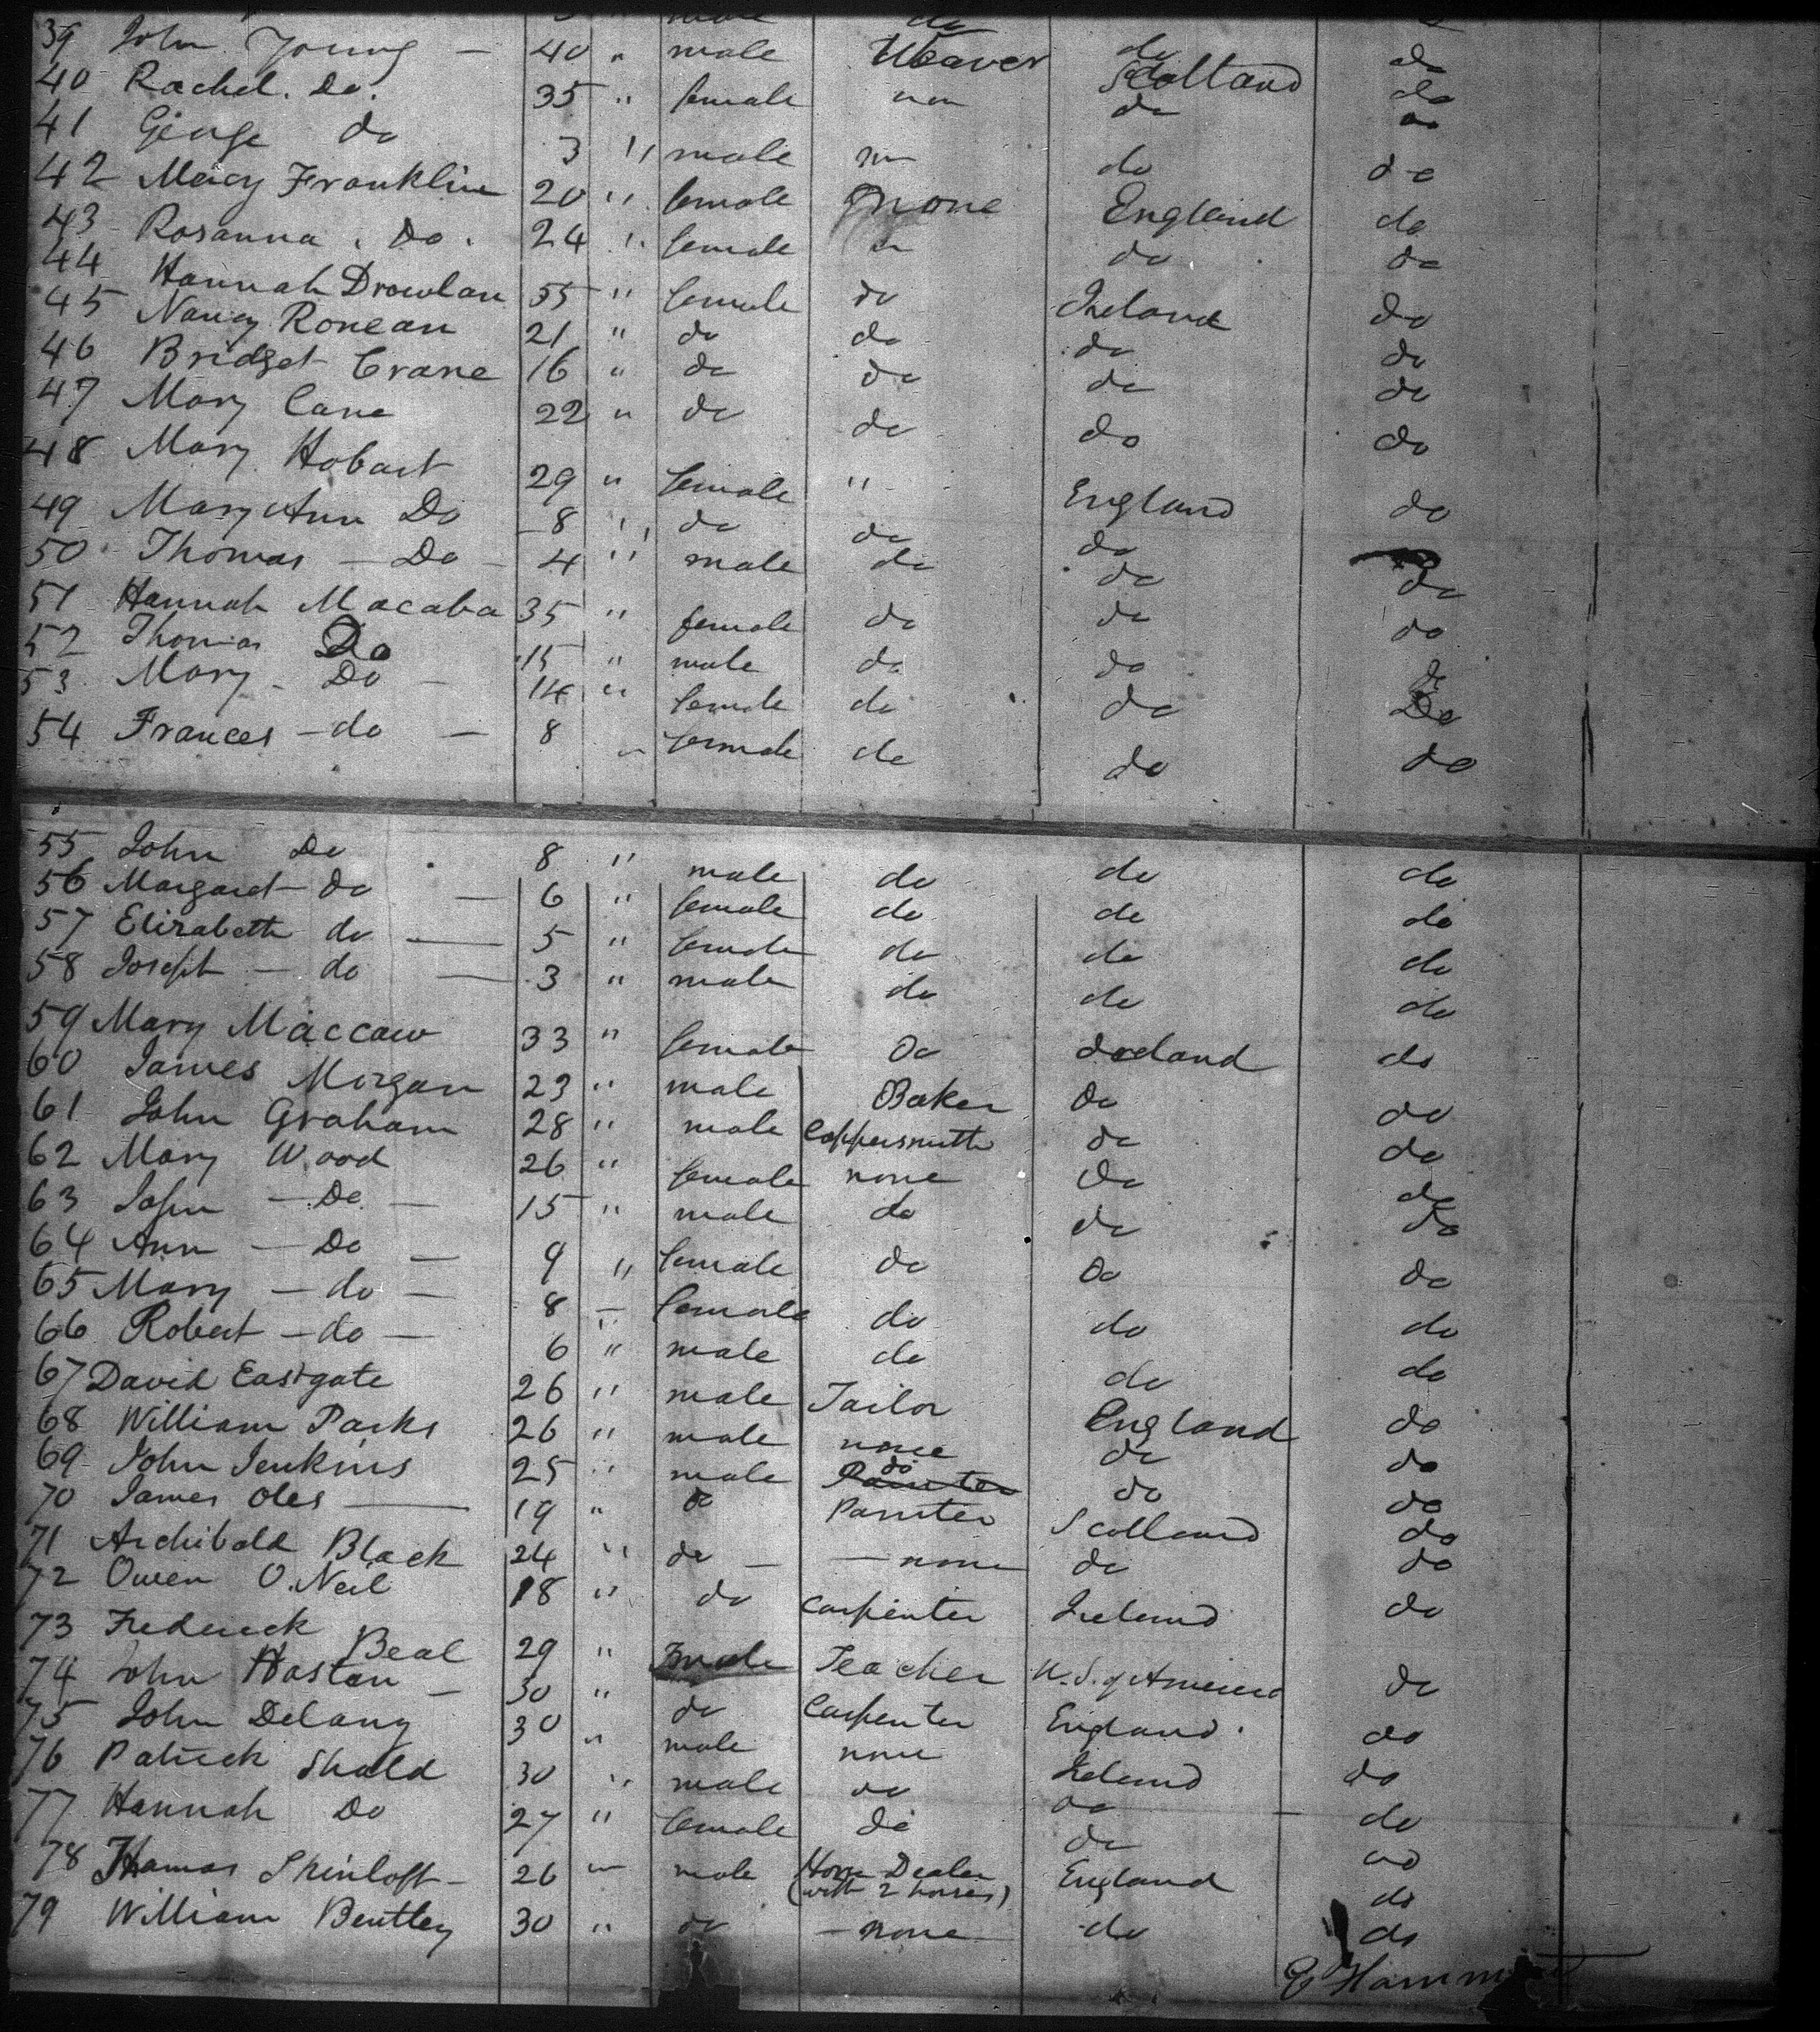 39 John Young — 40 " male Weaver Scotland do
40 Rachel. Do. 35 " female " " do do
41 George do 3 " male " do do
42 Macy Franklin 20 " female none England do
43 Rosanna . Do . 24 " female " do do
44 Hannah Drowlan 55 " female do Ireland do
45 Nancy Ronean 21 " do do do do
46 Bridget Crane 16 " do do do do
47 Mary Cane 22 " do do do do
48 Mary Hobart 29 " female " England do
49 Mary Ann Do 8 " do do do
50 Thomas — Do — 4 " male do do do
51 Hannah Macaba 35 " female do do do
52 Thomas Do 15 " male do do do
53 Mary - Do — 14 " female do do Do
54 Frances — do — 8 " female do do do
55 John Do 8 " male do do do
56 Margaret do — 6 " female do do do
57 Elizabeth do — 5 " female do do do
58 Joseph — do — 3 " male do do do
59 Mary Maccaw 33 " female Do Ireland do
60 James Morgan 23 " male Baker Do do
61 John Graham 28 " male Coppersmith do do
62 Mary Wood 26 " female none Do do
63 John — Do — 15 " male do do do
64 Ann — Do — 9 " female do Do do
65 Mary — do — 8 " female do do do
66 Robert — do — 6 " male do do do
67 David Eastgate 26 " male Tailor England do
68 William Parks 26 " male none do do
69 John Jenkins 25 " male do do do
70 James Oles — 19 " do Painter Scotland do
71 Archibald Black 24 " do — — none do do
72 Owen O.Neil 18 " do Carpenter Ireland do
73 Frederick Beal 29 " male Teacher U.S. of America do
74 John Hastan — 30 " do Carpenter England. do
75 John Delany 30 " male none Ireland do
76 Patrick Shald 30 " male do do do
77 Hannah Do 27 " female do do do
78 Thomas Skinloft — 26 " male Horse Dealer (with 2 horses) England do
79 William Bentley 30 " do — none do do